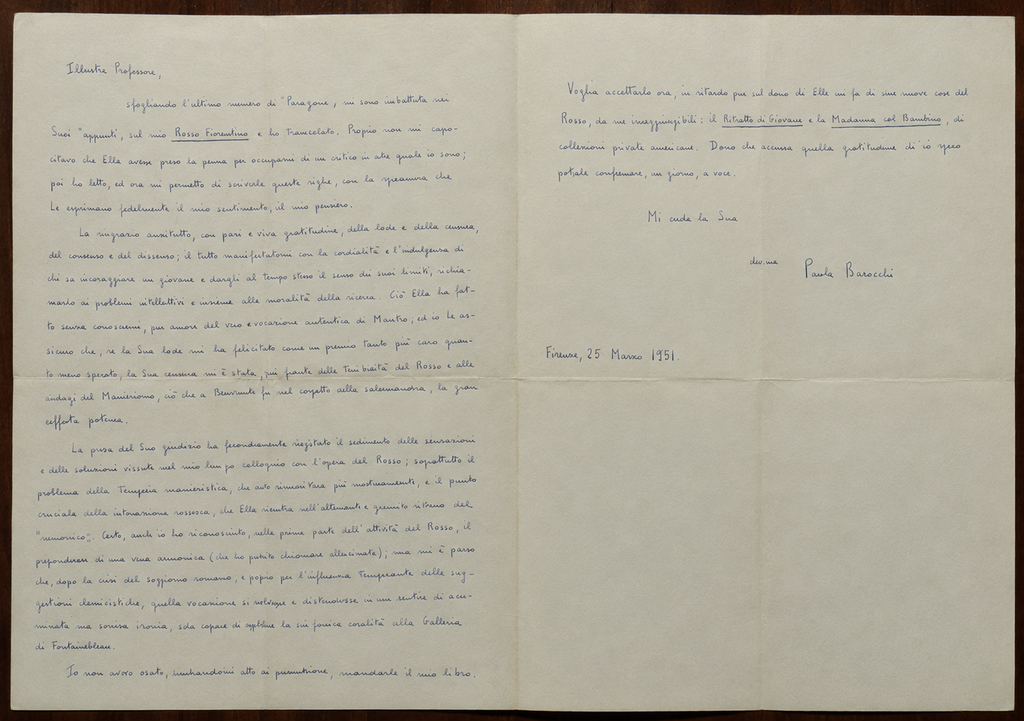 Illustre Professore,
sfogliando l'ultimo numero di "Paragone, mi sono imbattuta nei
Suoi "appunti, sul mio Rosso Fiorentino e ho trasecolato. Proprio non mi capa-
citavo che Ella avesse preso la penna per occuparsi di un critico in quale io sono;
poi ho letto, ed ora mi permetto di scriverle queste righe, con la speranza che
Le esprimano fedelmente il mio sentimento, il mio pensiero.
La ringrazio anzitutto, con pari e viva gratitudine, della lode e della censura,
del consenso e del dissenso; il tutto manifestatomi con la cordialità e l'indulgenza di
chi sa incoraggiare un giovane e dargli al tempo stesso il senso dei suoi limiti, richia-
marlo ai problemi intellettivi e insieme alle moralità della ricerca. Ciò Ella ha fat-
to senza conoscermi, per amore del vero e vocazione autentica di Maestro; ed io Le as-
sicuro che, se la Sua lode mi ha felicitato come un premio tanto più caro quan-
to meno sperato, la Sua censura mi è stata, di fronte delle terribilità del Rosso e alle
ambagi del Manierismo, ciò che a Benvenuto fu nel cospetto della salamandra, la gran
ceffata paterna.
La presa del Suo giudizio ha fecondamente rimestato il sedimento delle sensazioni
e delle soluzioni vissute nel mio lungo colloquio con l'opera del Rosso; soprattutto il
problema della temperie manieristica, che avrò rimeditare più mostruosamente, e il punto
cruciale della intonazione rossesca, che Ella rientra nell'allenante e gremito ritmo del
"armonico". Certo, anch'io ho riconosciuto, nella prima parte dell'attività del Rosso, il
preponderare di una vena armonica (che ho potuto chiamare allucinata); ma mi è parso
che, dopo la crisi del soggiorno romano, e proprio per l'influenza temperante delle sug-
gestioni classicistiche, quella vocazione si volgesse e distendesse in un sentire di acu-
minata ma sorrisa ironia, sola capace di la sua fonica coralità alla Galleria
di Fontainebleau.
Io non avevo osato, sembrandomi atto di presunzione, mandarle il mio libro.
Voglia accettarlo ora, in ritardo pur sul dono di Elle mi fa di sue nuove cose del
Rosso, da me inaggiungibili: il Ritratto di Giovane e la Madonna col Bambino, di
collezioni private americane. Dono che accresce quella gratitudine ch'io spero
potrale confermare, un giorno, a voce.
Mi creda la Sua
dev.ma Paola Barocchi
Firenze, 25 Marzo 1951.